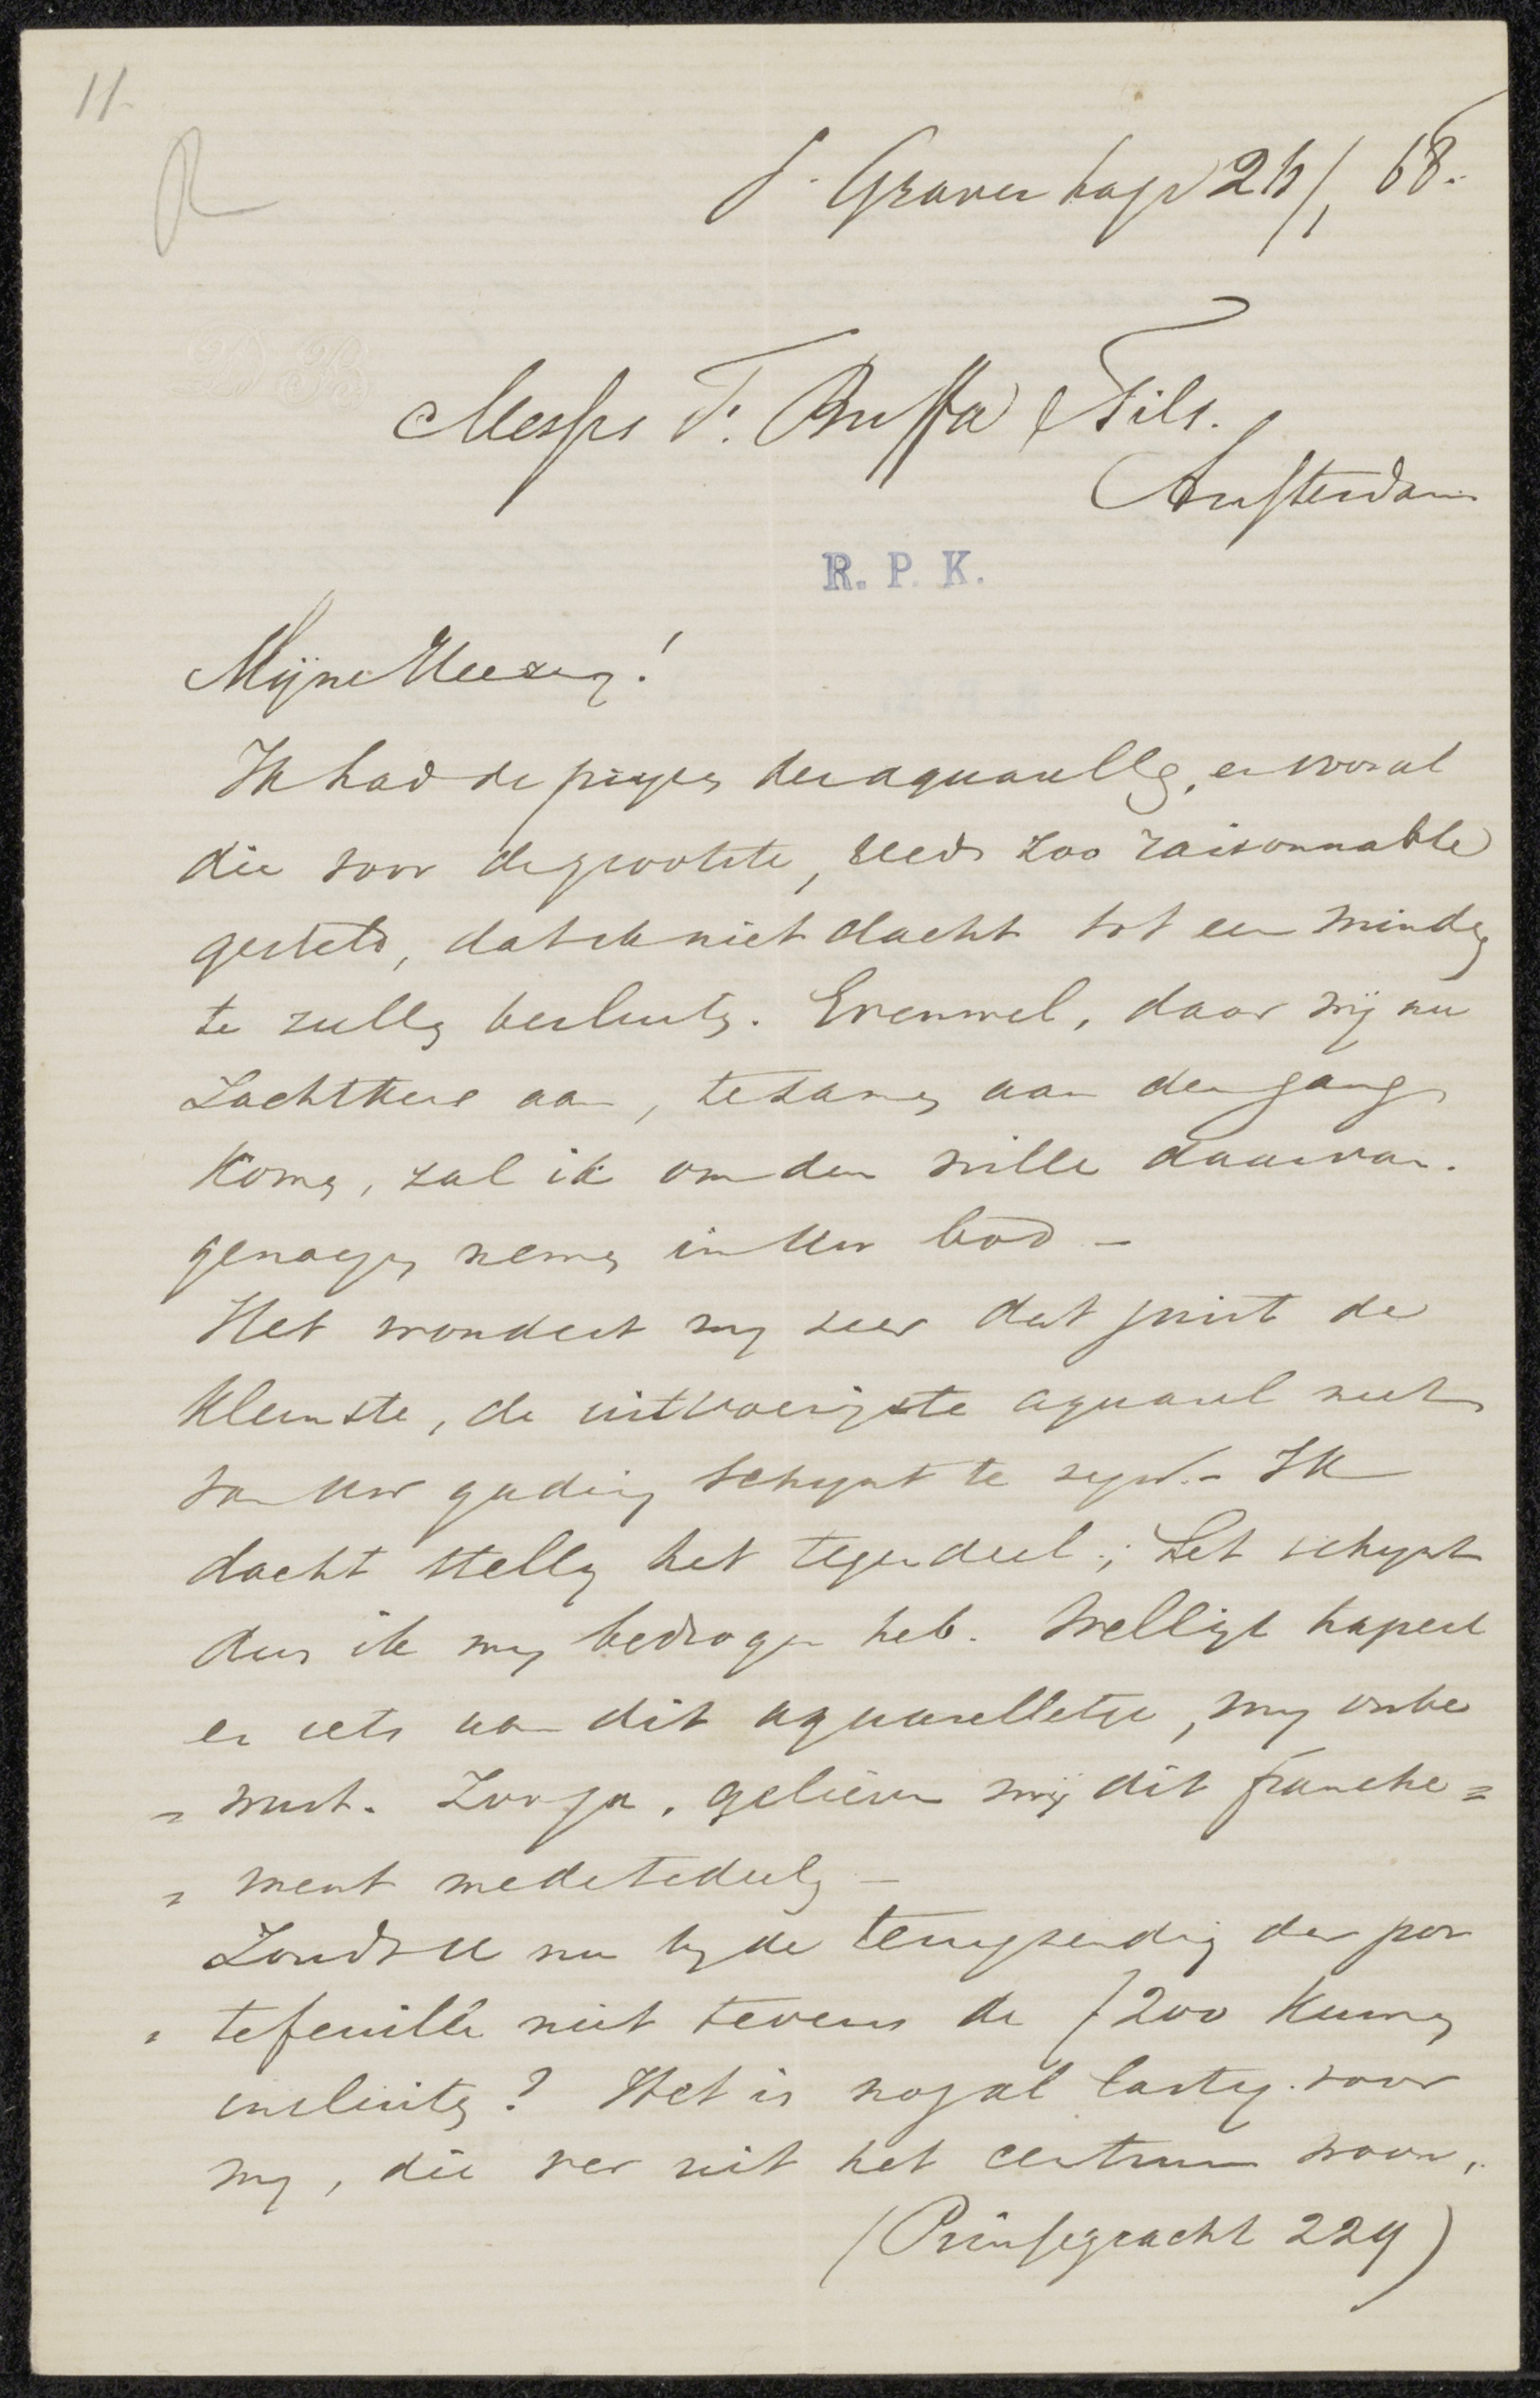 11.
R
s' Gravenhage 26/1 68.
D B
Messrs F. Buffa & Fils.
Amsterdam
R. P. K.
Mijne Heeren!
Ik had de prijzen der aquarellen, en vooral
die voor de grootste, reeds zoo raisonnable
gesteld, dat ik niet dacht tot een minder
te zullen besluiten. Evenwel, daar wij nu
Zachtkens aan, tesamen aan den gang
komen, zal ik om den wille daarvan
genoegen nemen in Uw bod –
Het wondert my zeer dat juist de
kleinste, de uitvoerigste aquarel niet
van Uw gading schynt te zyn. – Ik
dacht stellig het tegendeel; het schynt
dus ik my bedrogen heb. Welligt hapert
er iets aan dit aquarelletje, my onbe
= wust. Zoo ja, gelieve mij dit franche =
= ment medetedeelen –
Zoudt U nu by de terugzending der por
= tefeuille niet tevens de ƒ 200 kunnen
insluiten? Het is nogal lastig voor
my, die ver uit het centrum woon,
(Prinsegracht 224)